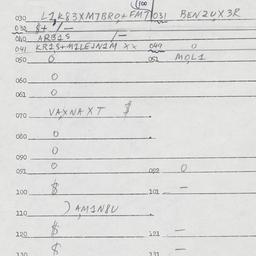 100
030 L1K83XM7BRO,+FMT 031 BEN2U,X3R
032 $+ 7/—
040 ARB1S /—
041 KR1S+M1LEJN1M XX 049 0
050 0 051 MOL1
060 0
061 0
070 VAXNAXT $
080 0
090 0
091 0 092 0
100 $ 101 —
110 ) AM1N8U
120 $ 121 —
130 $ 131 —